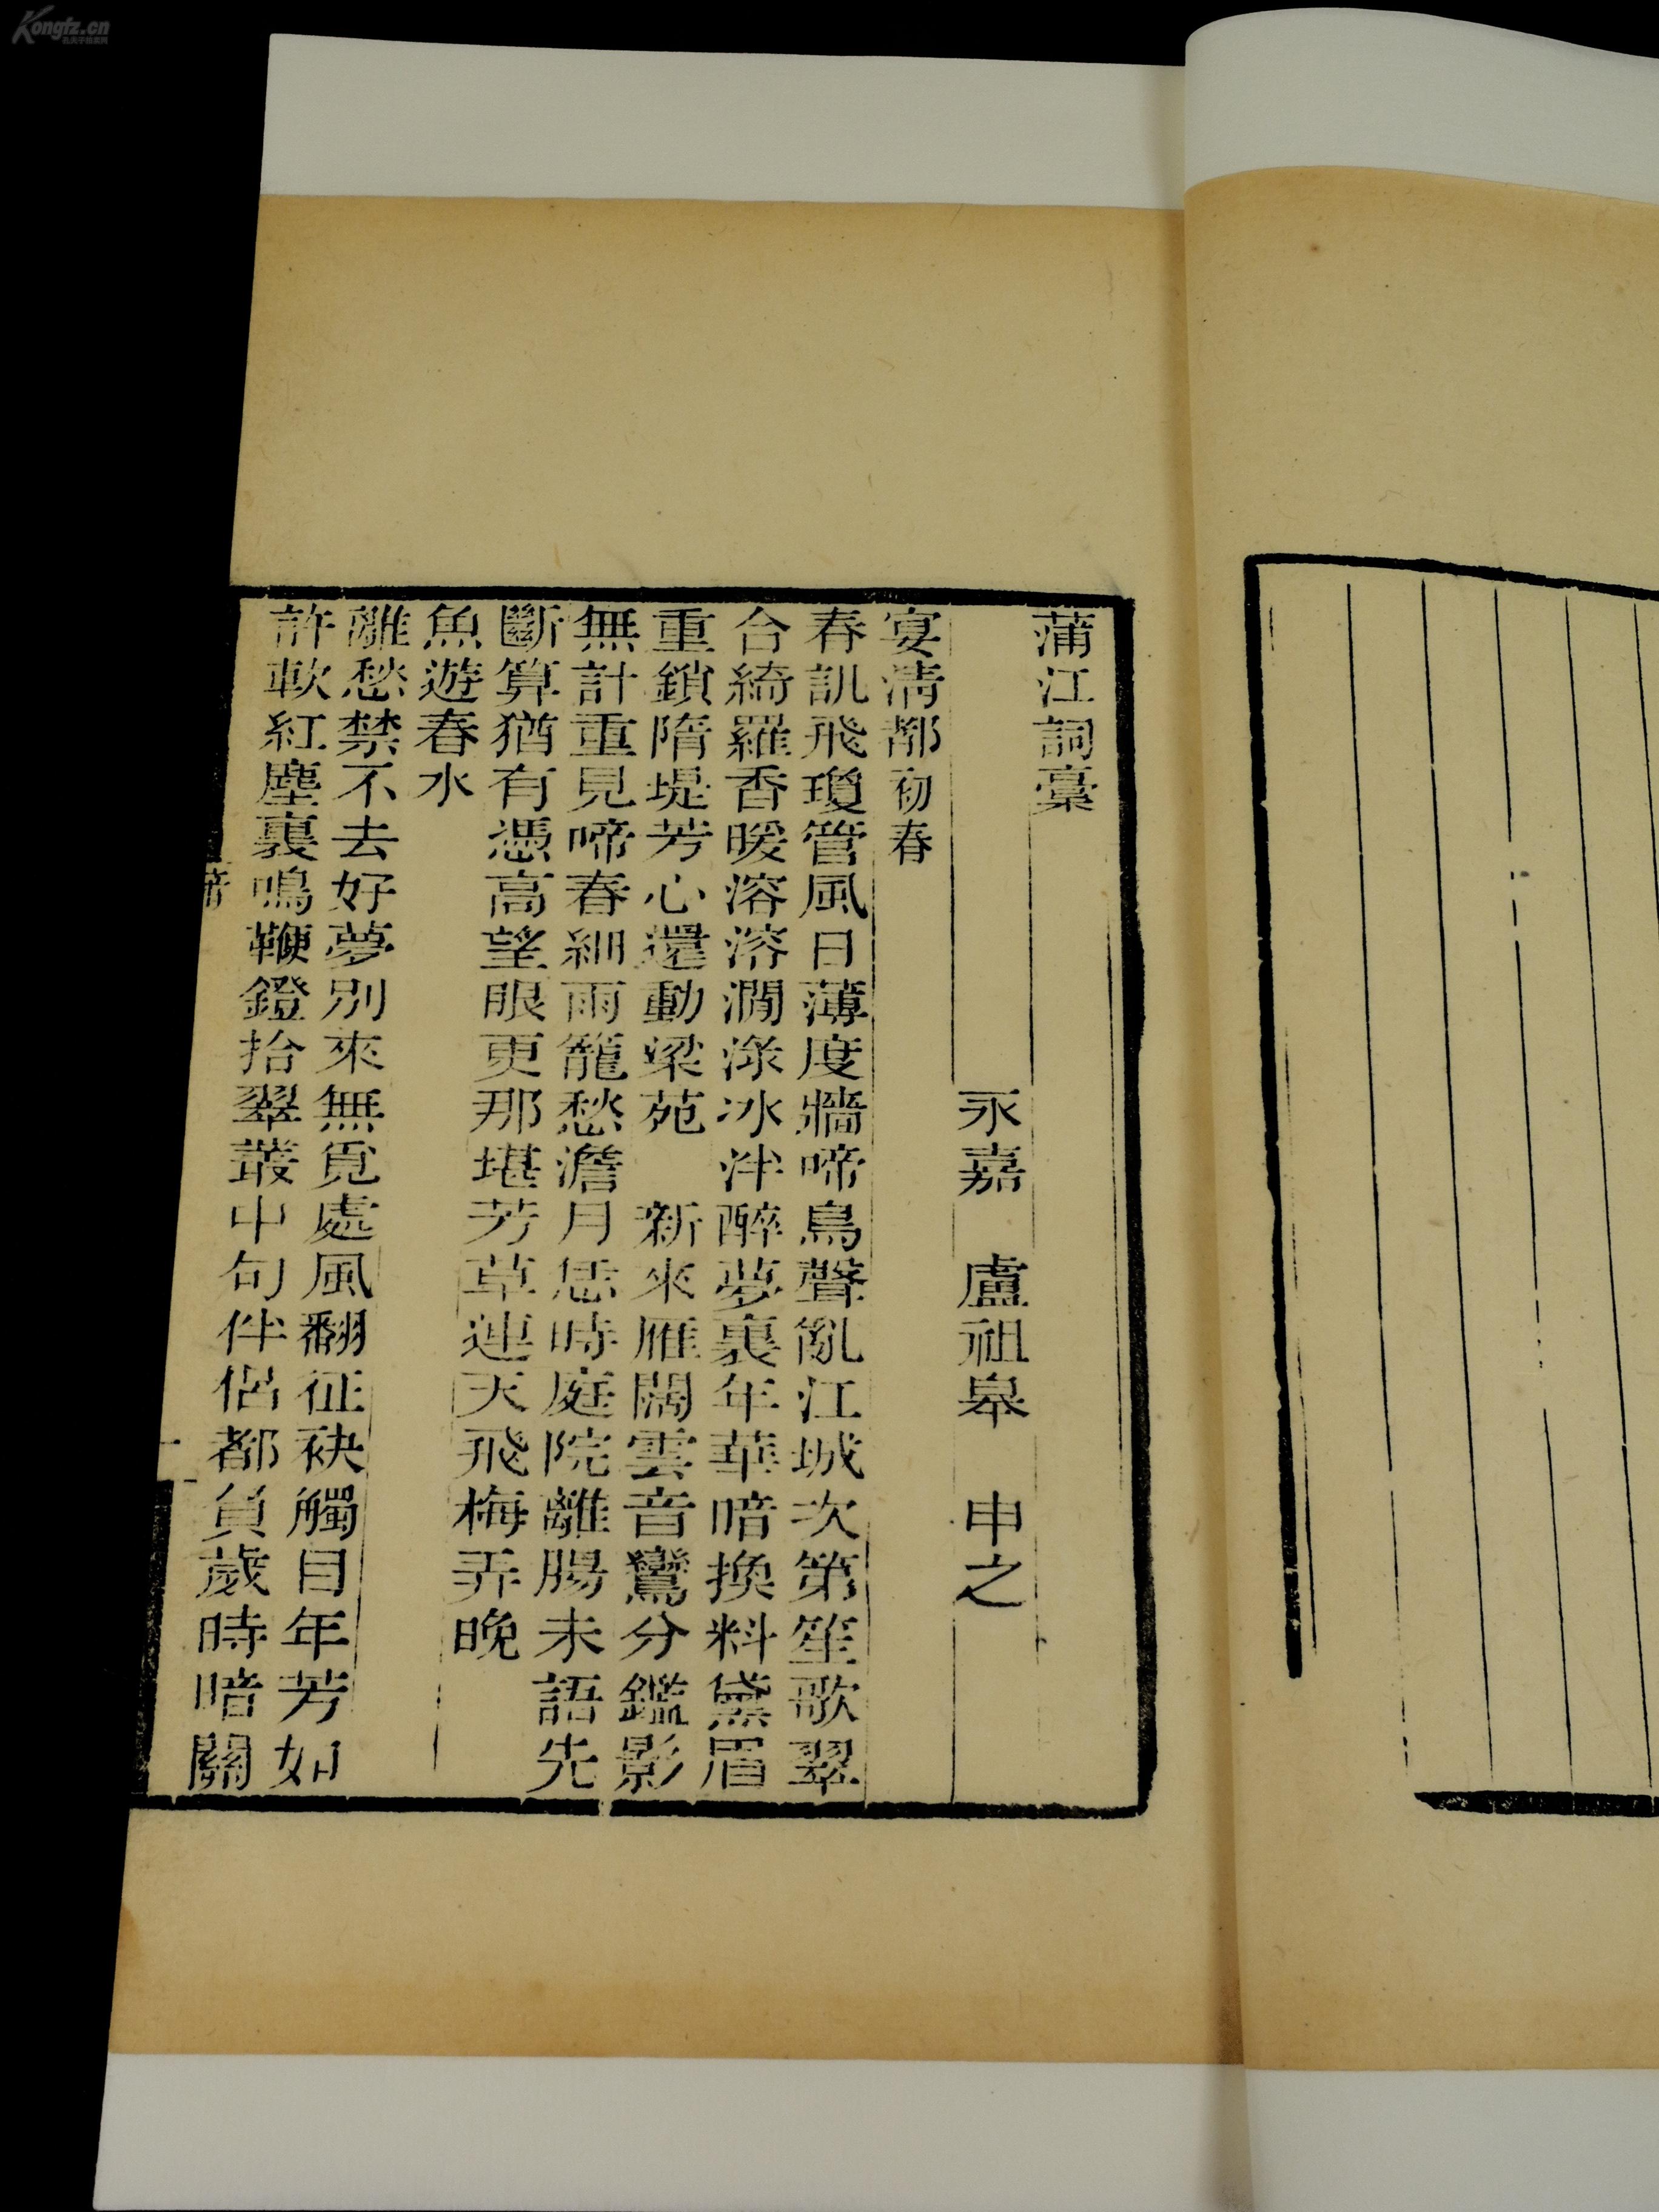 蒲江詞稾
永嘉　盧祖皋　申之
宴清都初春
春訊飛瓊管風日薄度牆啼鳥聲亂江城次第笙歌翠
合綺羅香暖溶溶澗淥冰泮醉夢裏年華暗換料黛眉
重鎖隋堤芳心還動梁苑　新來雁闊雲音鸞分鑑影
無計重見啼春細雨籠愁澹月恁時庭院離腸未語先
斷算猶有憑高望眼更那堪芳草連天飛梅弄晚
魚遊春水
離愁禁不去好夢別來無覓處風翻征袂觸目年芳如
許軟紅塵裏鳴鞭鐙拾翠叢中句伴侶都負歲時暗關
一
Kongfz.cn